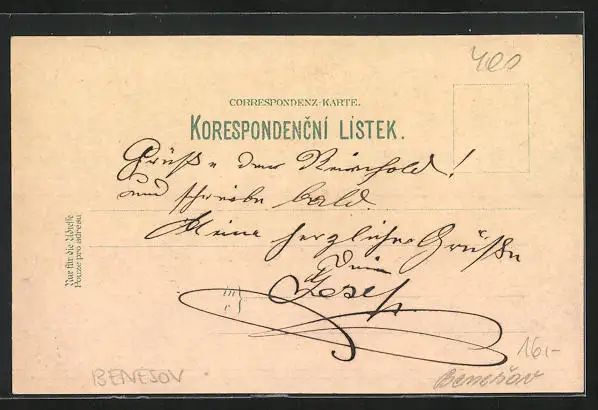 400
CORRESPONDENZ-KARTE.
KORESPONDENČNÍ LISTEK.
Grüße den Reinhold!
und schreibe bald.
Meine herzlichen Grüße
Dein
Josef
Nur für die Adresse.
Pouze pro adresu.
16,-
BENESOV
Benešov